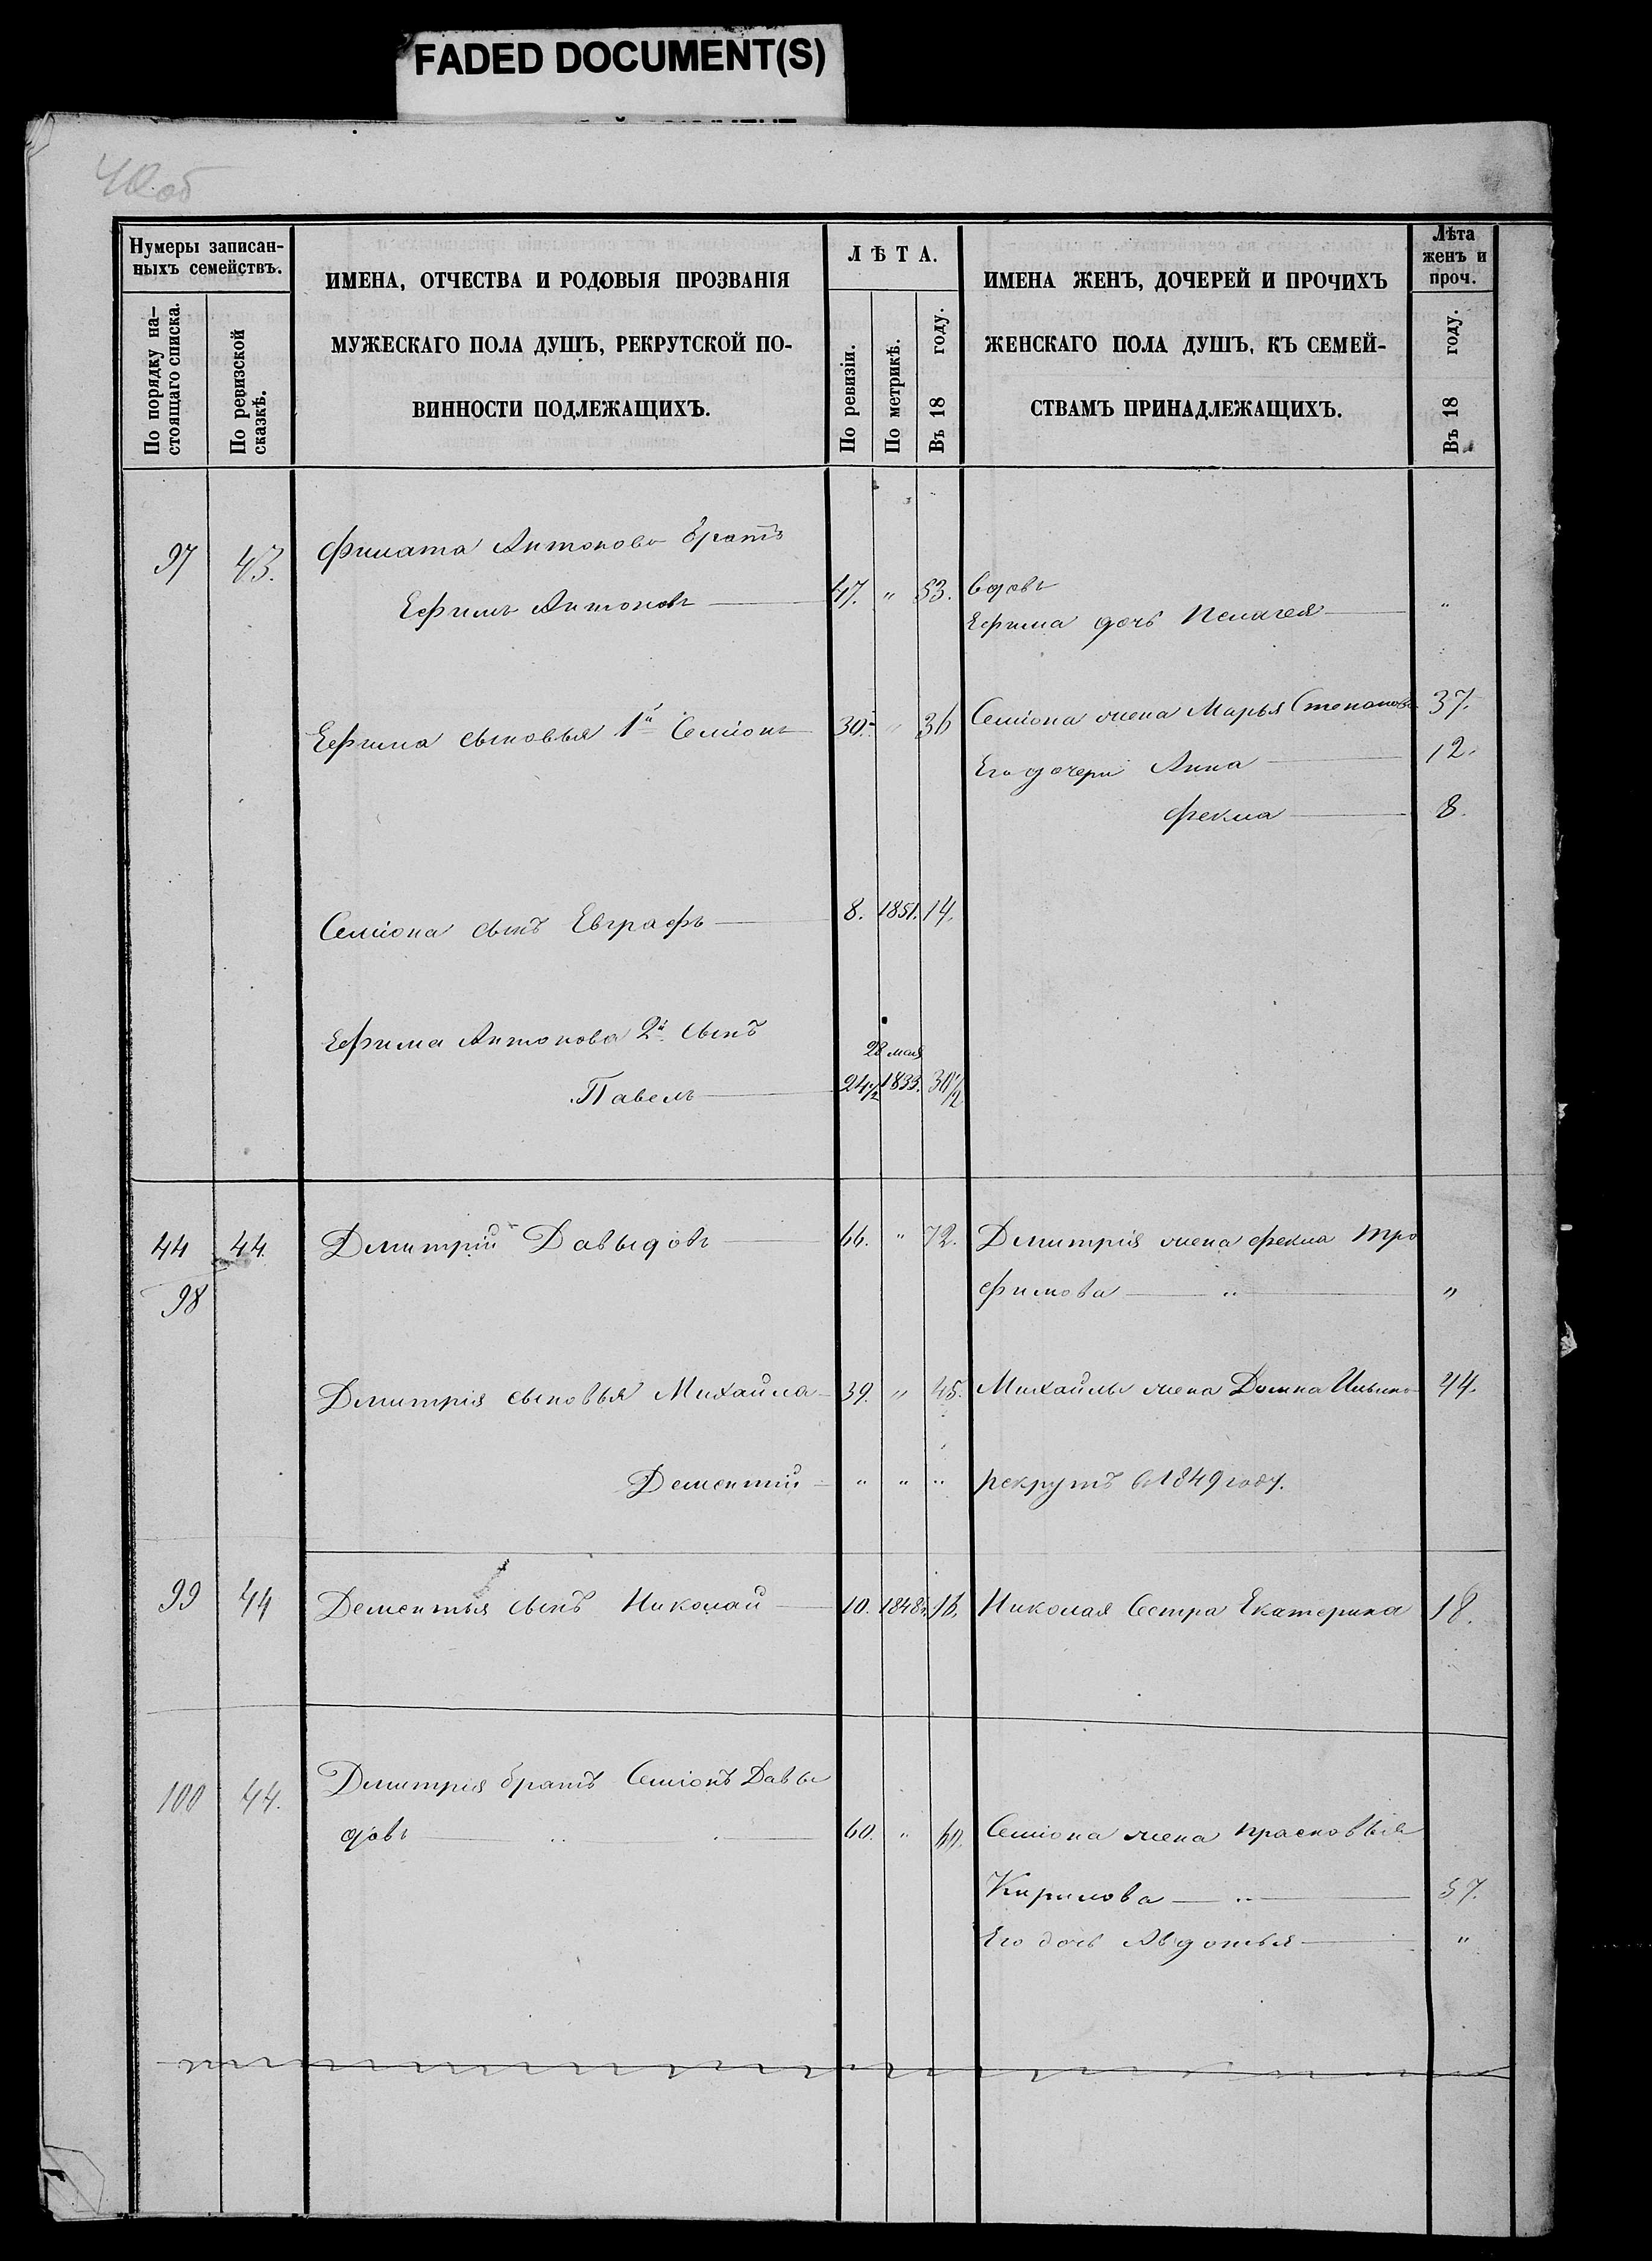 FADED DOCUMENT(S)
40 об
Нумеры записан-
ныхъ семействъ.
По порядку на-
стоящаго списка.
По ревизской
сказкѣ.
ИМЕНА, ОТЧЕСТВА И РОДОВЫЯ ПРОЗВАНІЯ
МУЖЕСКАГО ПОЛА ДУШЪ, РЕКРУТСКОЙ ПО-
ВИННОСТИ ПОДЛЕЖАЩИХЪ.
ЛѢТА.
По ревизіи.
По метрикѣ.
Въ 18 году.
ИМЕНА ЖЕНЪ, ДОЧЕРЕЙ И ПРОЧИХЪ
ЖЕНСКАГО ПОЛА ДУШЪ, КЪ СЕМЕЙ-
СТВАМЪ ПРИНАДЛЕЖАЩИХЪ.
Лѣта
женъ и
проч.
Въ 18 году.
97 43. Филата Антонова братъ
Ефимъ Антоновъ 47. " 53. вдовъ
Ефима дочь Пелагея "
Ефима сыновья 1й Семіонъ 30. " 36 Семіона жена Марья Степанова 37.
Его дочери Анна 12.
Фекла 8.
Семіона сынъ Евграфъ 8. 1851. 14.
Ефима Антонова 2й сынъ
28 мая
Павелъ 24 1/2 1833. 30 1/2
44 44. Дмитрій Давыдовъ 66. " 72. Дмитрія жена Фекла Тро
98 фимова "
Дмитрія сыновья Михайла 39. " 45. Михайлы жена Домна Ильина 44.
Дементій " " " рекрутъ в 1849 году.
99 44 Дементья сынъ Николай 10. 1848. 16. Николая Сестра Екатерина 18.
100 44. Дмитрія братъ Семіонъ Давы
довъ 60. " Семіона жена Прасковья
Кирилова 57.
Его дочь Авдотья "